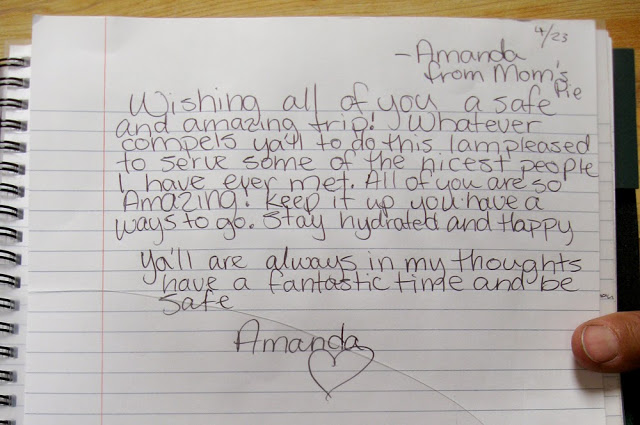 4/23
-Amanda
from Mom's
Pie
Wishing all of you a safe
and amazing trip! Whatever
compels ya'll to do this I am pleased
to serve some of the nicest people
I have ever met. All of you are so
Amazing! Keep it up you have a
ways to go. Stay hydrated and Happy
Ya'll are always in my thoughts
have a fantastic time and be
safe
Amanda